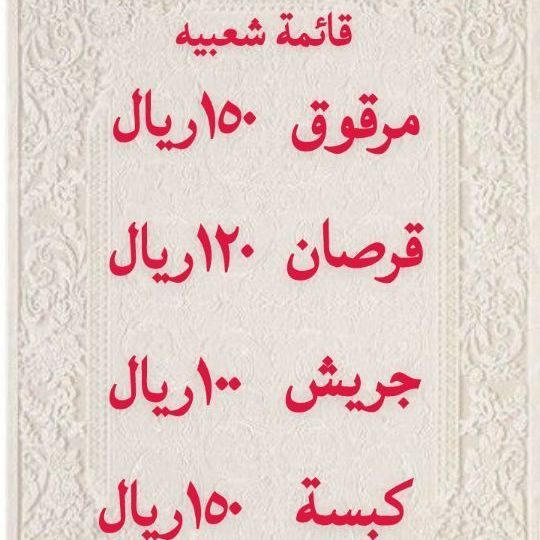 قائمة شعبيه
مرقوق ١٥٠ريال
قرصان ١٢٠ريال
جريش ١٠٠ريال
كبسة ١٥٠ريال